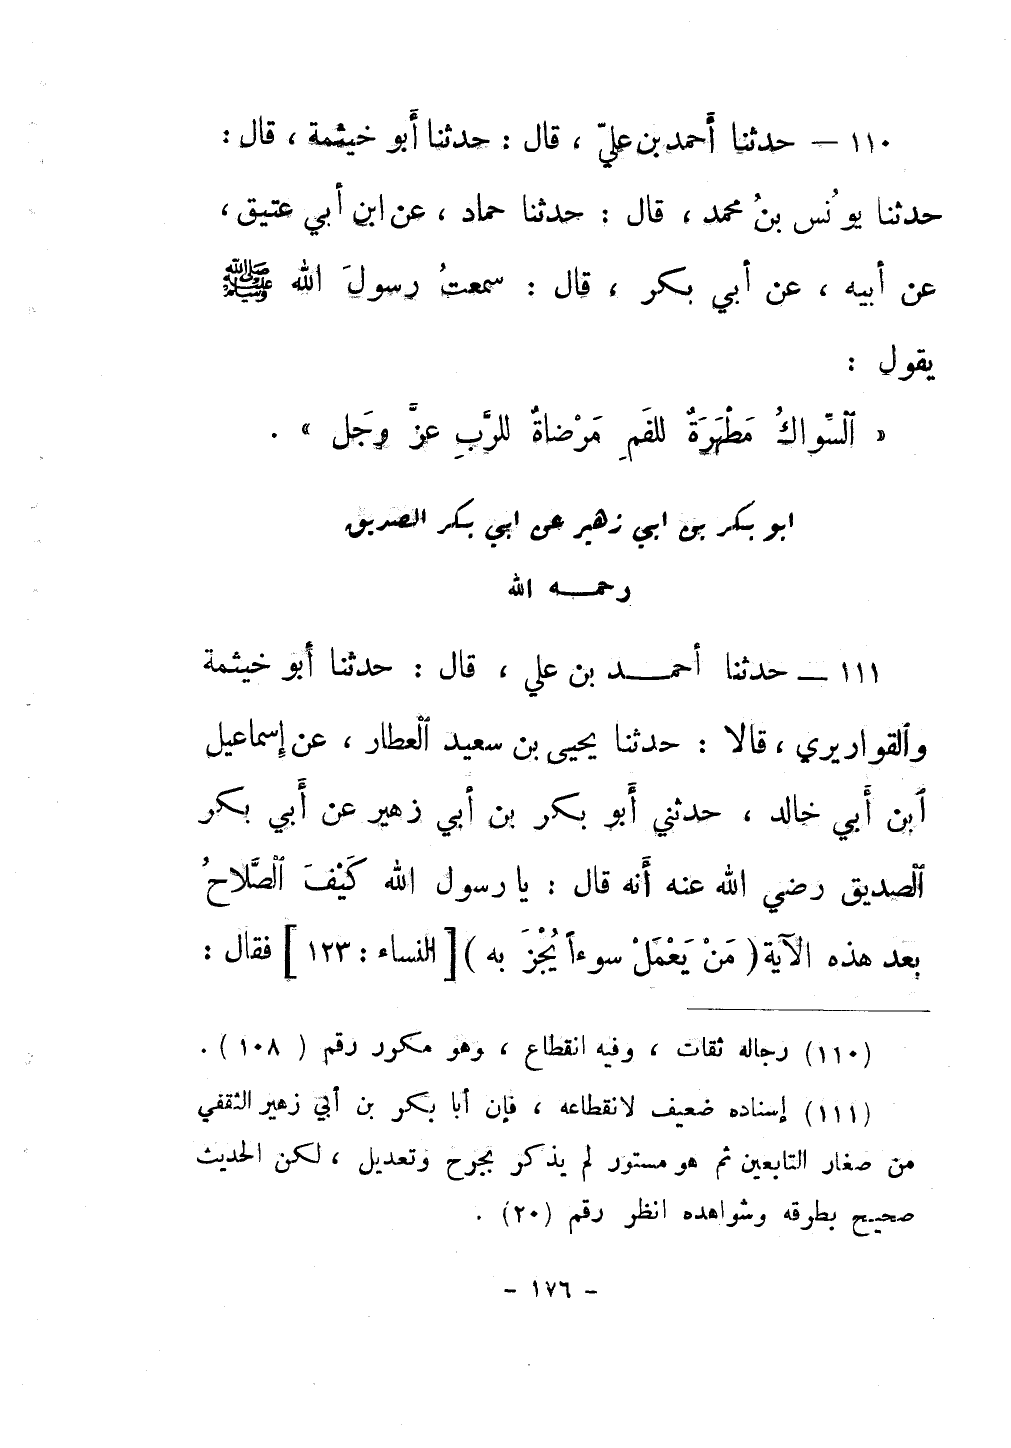 ١١٠ — حدثنا أَحمد بن عليّ ، قال : حدثنا أَبو خيثمة ، قال :
حدثنا يونُس بنُ محمد ، قال : حدثنا حماد ، عن ابن أبي عتيق ،
عن أبيه ، عن أبي بكر ، قال : سمعتُ رسولَ الله ﷺ
يقول :
« ٱلسِّواكُ مَطْهَرَةٌ للفَمِ مَرْضاةٌ للرَّبِ عزَّ وجَل » .
ابو بكر بن ابي زهير عن ابي بكر الصديق
رحمـــه الله
١١١ — حدثنا أحمـــد بن علي ، قال : حدثنا أَبو خيثمة
وٱلقواريري ، قالا : حدثنا يحيى بن سعيد ٱلعطار ، عن إسماعيل
ٱبن أَبي خالد ، حدثني أَبو بكر بن أبي زهير عن أَبي بكر
ٱلصديق رضي الله عنه أَنه قال : يا رسول الله كَيْفَ ٱلصَّلاحُ
بعد هذه الآية ( مَنْ يَعْمَلْ سوءاً يُجْزَ به ) [ النساء : ١٢٣ ] فقال :
(١١٠) رجاله ثقات ، وفيه انقطاع ، وهو مكرر رقم ( ١٠٨ ) .
(١١١) إسناده ضعيف لانقطاعه ، فإن أبا بكر بن أبي زهير الثقفي
من صغار التابعين ثم هو مستور لم يذكر بجرح وتعديل ، لكن الحديث
صحيح بطرقه وشواهده انظر رقم (٢٠) .
- ١٧٦ -